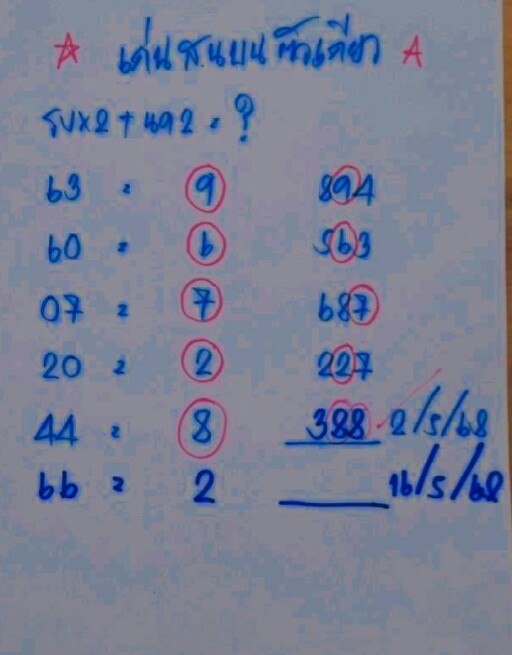 ☆ เด่น ส.นบน ตัวเดียว ☆
รบx2+ผล2 = ?
63 = 9 894
60 = 6 563
07 = 7 687
20 = 2 227
44 = 8 388 2/5/68
66 = 2 16/5/68